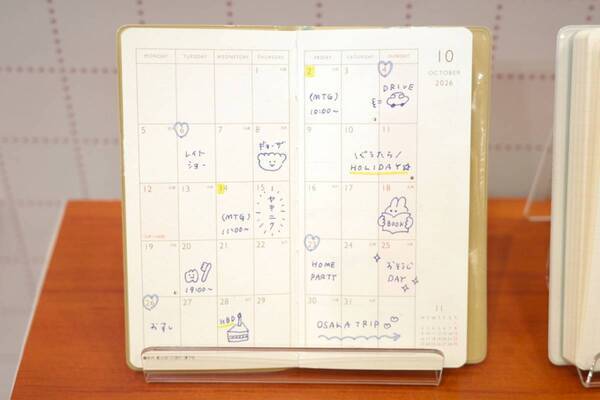 MONDAY TUESDAY WEDNESDAY THURSDAY FRIDAY SATURDAY SUNDAY
10
OCTOBER
2026
1 2 3 4
(MTG)
10:00〜
DRIVE
5 6 7 8 9 10 11
レイト
ショー
ギョーザ
ぐうたら
HOLIDAY
12 13 14 15 16 17 18
(MTG)
11:00〜
ヤキニク
BOOK
19 20 21 22 23 24 25
19:00〜
HOME
PARTY
おそうじ
DAY
26 27 28 29 30 31
おすし
HBD
OSAKA TRIP
11
M T W T F S S